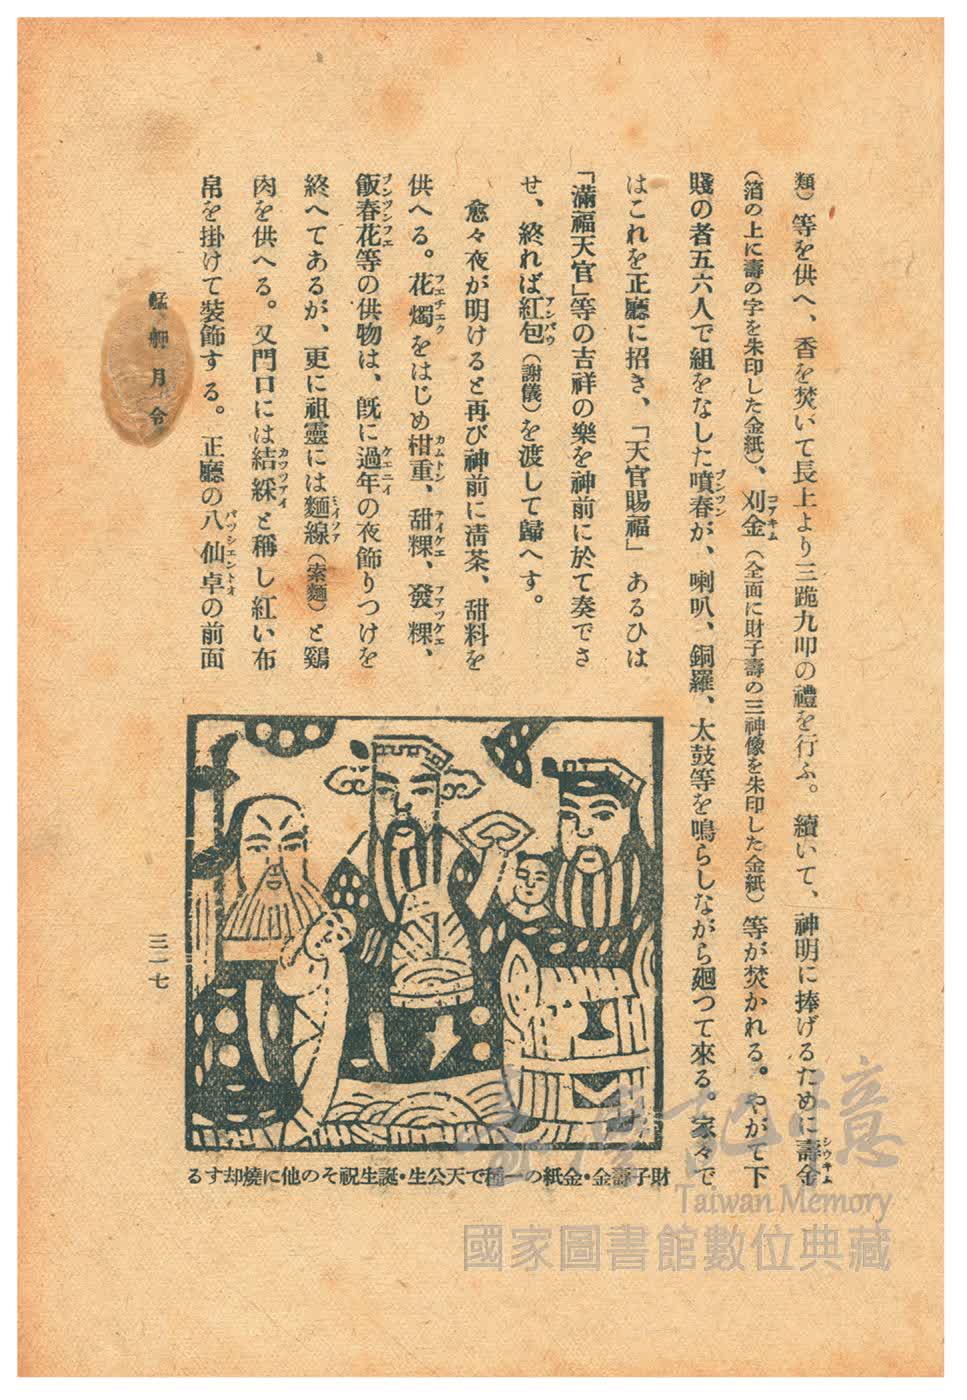 類）等を供へ、香を焚いて長上より三跪九叩の禮を行ふ。續いて、神明に捧げるために壽金
シウキム
（箔の上に壽の字を朱印した金紙）、刈金（全面に財子壽の三神像を朱印した金紙）等が焚かれる。やがて下
コアキム
賤の者五六人で組をなした噴春が、喇叭、銅羅、太鼓等を鳴らしながら廻つて來る。家々で
プンツン
はこれを正廳に招き、「天官賜福」あるひは
「滿福天官」等の吉祥の樂を神前に於て奏でさ
せ、終れば紅包（謝儀）を渡して歸へす。
アンパウ
愈々夜が明けると再び神前に淸茶、甜料を
供へる。花燭をはじめ柑重、甜粿、發粿、
フエチエク カムトン テイケエ フアツケエ
飯春花等の供物は、旣に過年の夜飾りつけを
プンツンフエ ケエニイ
終へてあるが、更に祖靈には麵線（索麵）と鷄
ミイソア
肉を供へる。又門口には結綵と稱し紅い布
カツツアイ
帛を掛けて裝飾する。正廳の八仙卓の前面
パツシエントオ
艋舺月令
三一七
財子壽金・金紙の一種で天公生・誕生祝その他に燒却する
臺灣記憶
Taiwan Memory
國家圖書館數位典藏